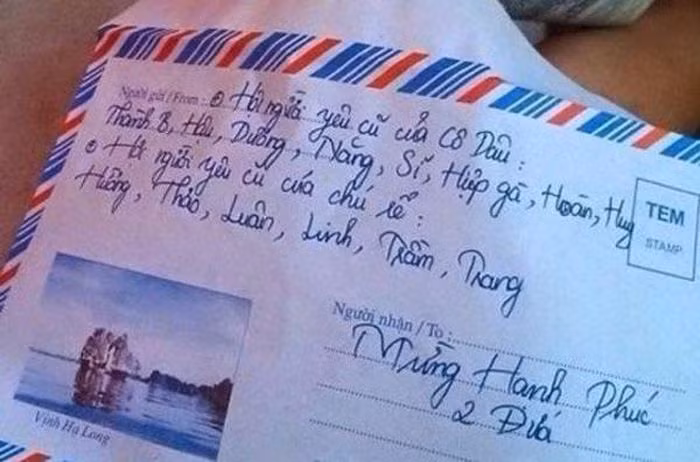 Người gửi / From : Hội người yêu cũ của Cô Dâu :
Thanh B, Hậu, Dương, Năng, Sĩ, Hiệp gà, Hoàn, Huy
Hội người yêu cũ của chú rể :
Hường, Thảo, Luân, Linh, Trâm, Trang
TEM
STAMP
Người nhận / To :
Mừng Hạnh Phúc
2 Đứa
Vịnh Hạ Long